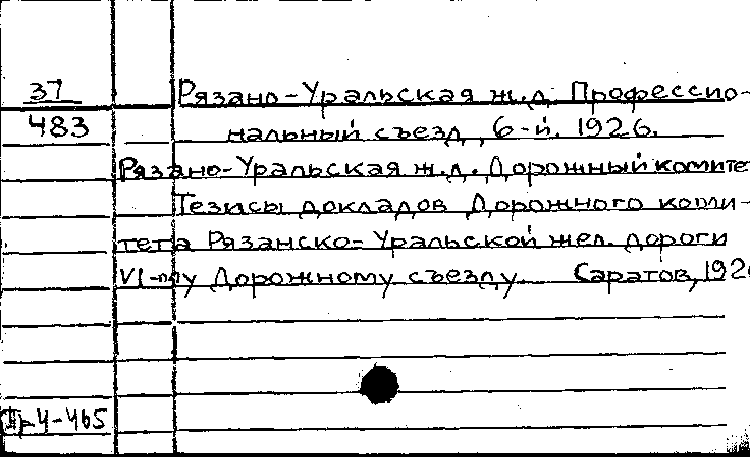 37 Рязано-Уральская ж.д. Профессио-
483 нальный съезд, 6-й. 1926.
Рязано-Уральская ж.д. Дорожный комите
Тезисы докладов Дорожного коми-
тета Рязанско-Уральской жел. дороги
VI-му Дорожному съезду. Саратов, 192
4-465